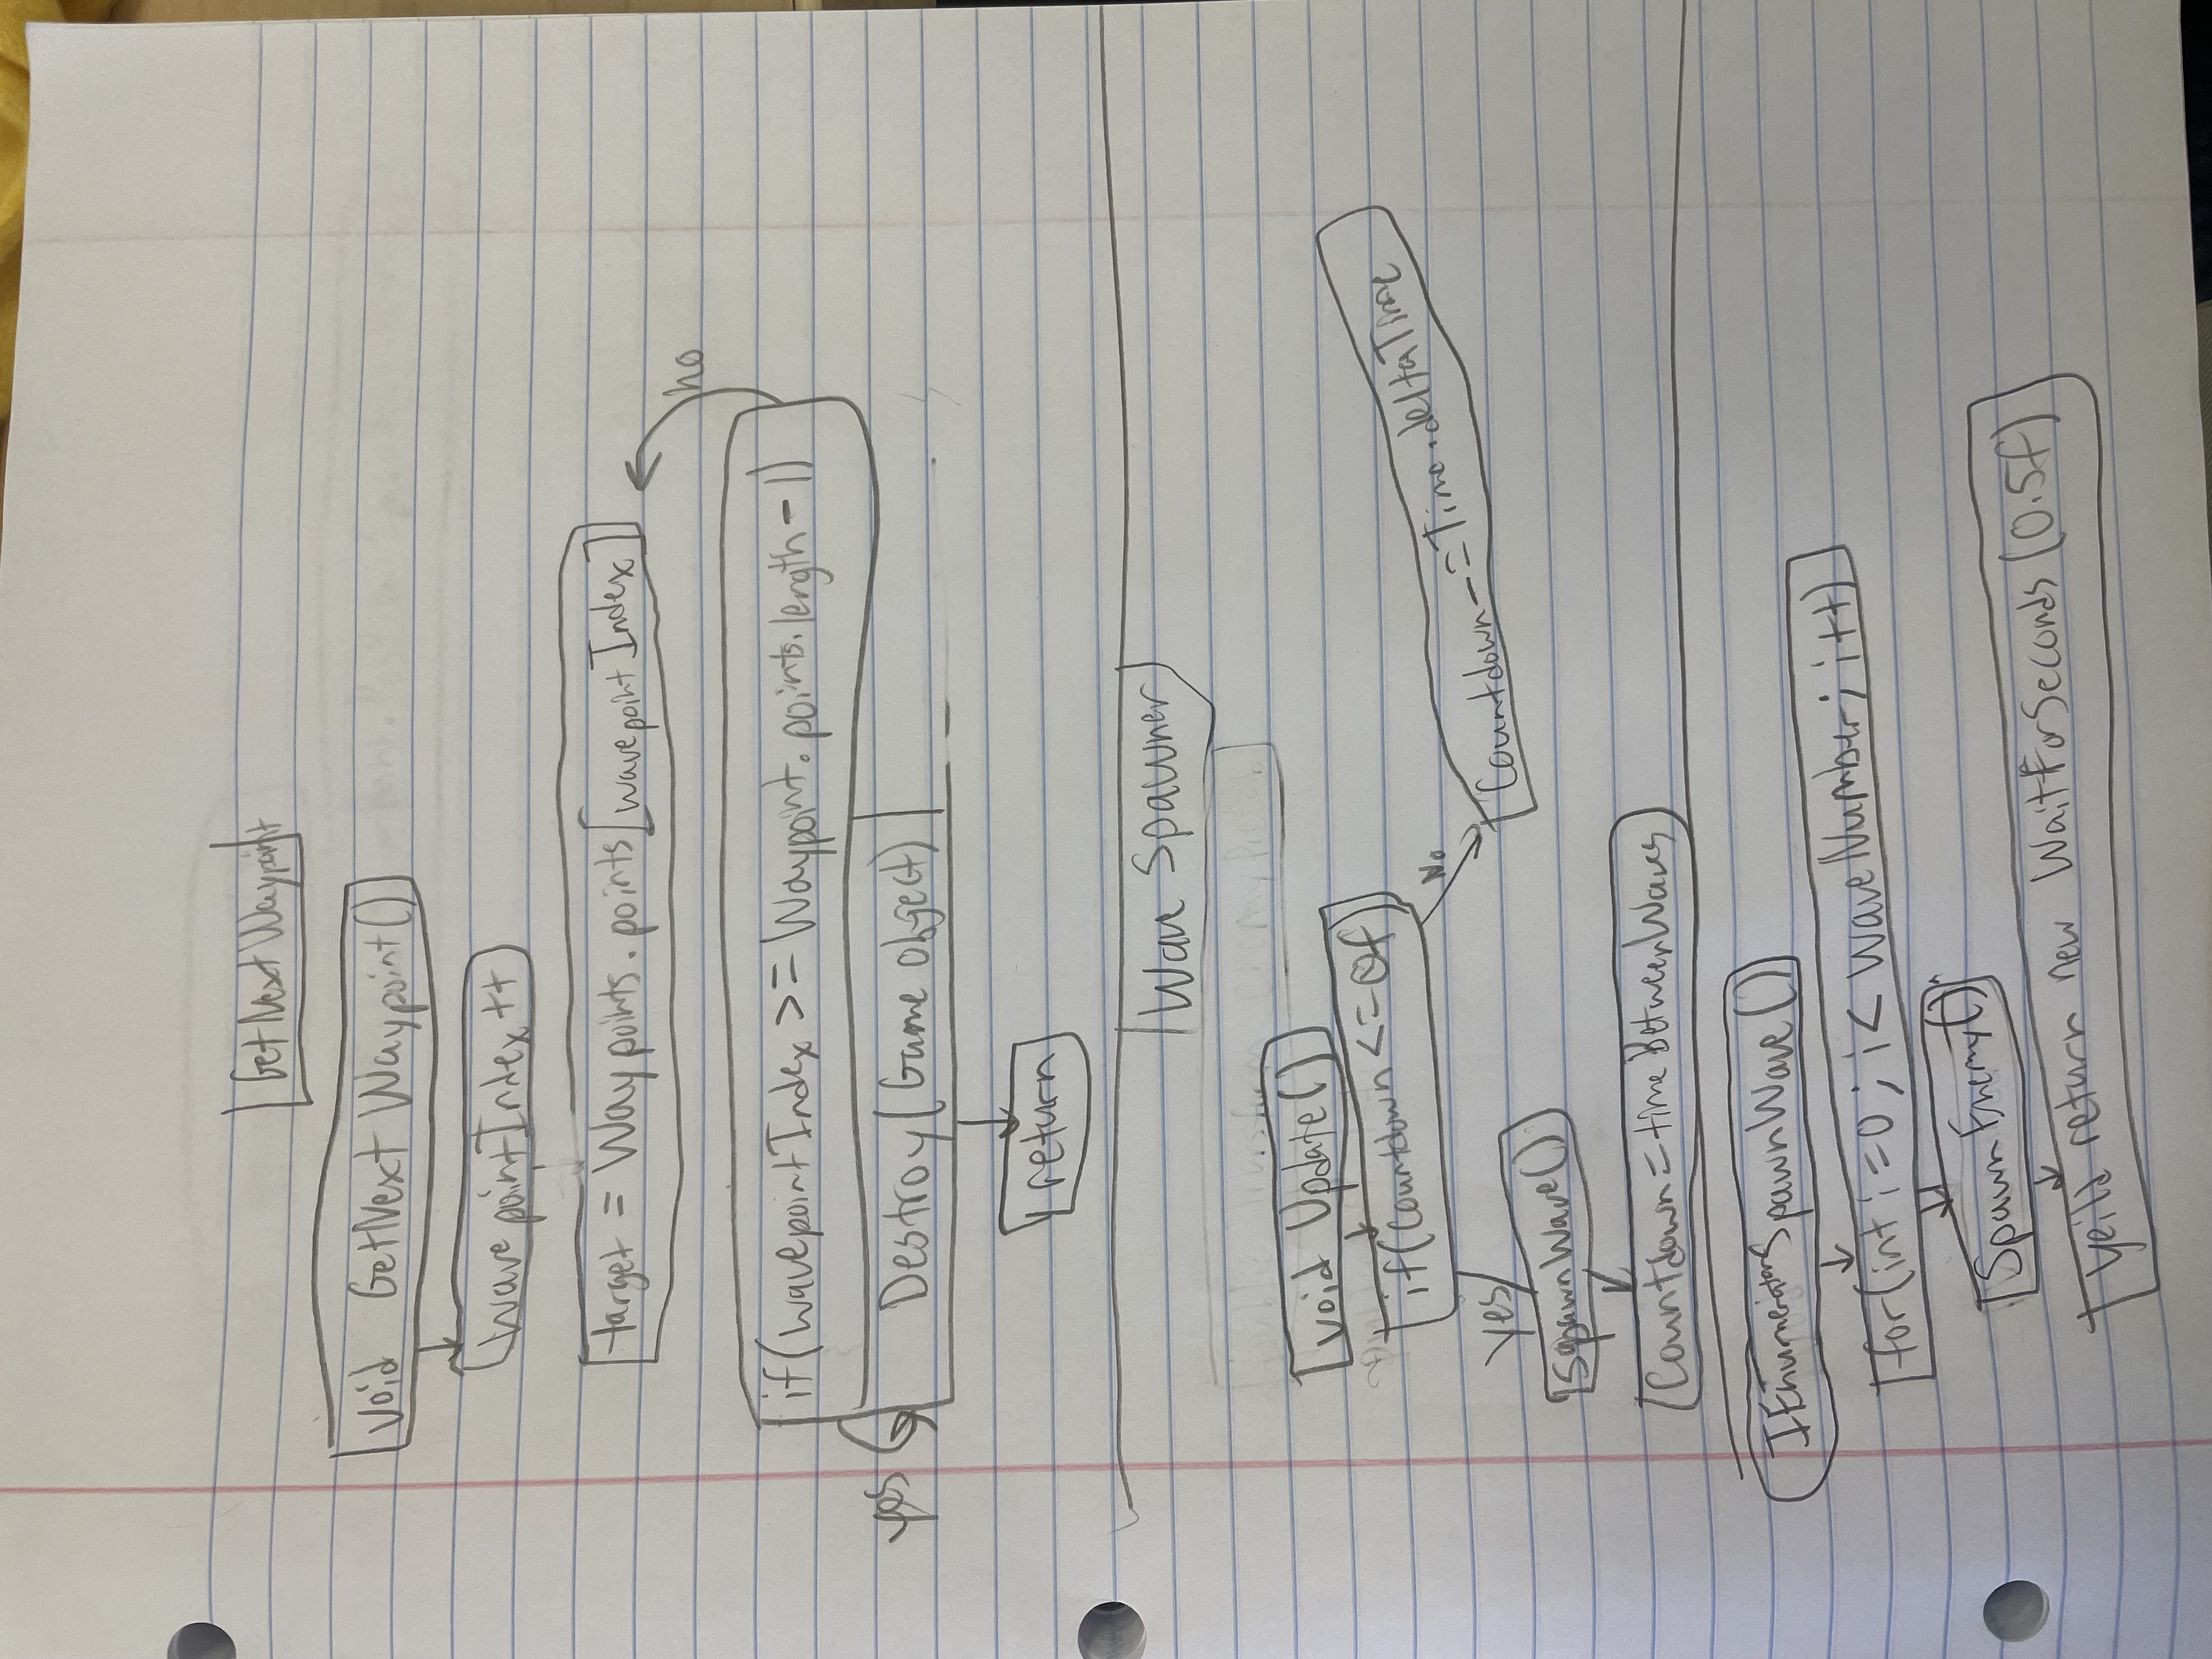 GetNextWaypoint
void GetNext Waypoint()
WavepointIndex++
target = Waypoints.points[wavepointIndex]
no
if(wavepointIndex >= Waypoint.points.length-1)
yes
Destroy(Game object)
return
Wave Spawner
void Update()
if(Countdown <= 0f)
No
Countdown -= Time.deltaTime
yes
SpawnWave()
Countdown = timeBetweenWaves
IEnumerator SpawnWave()
for(int i=0; i< waveNumber; i++)
SpawnEnemy()
yeild return new WaitForSeconds(0.5f)